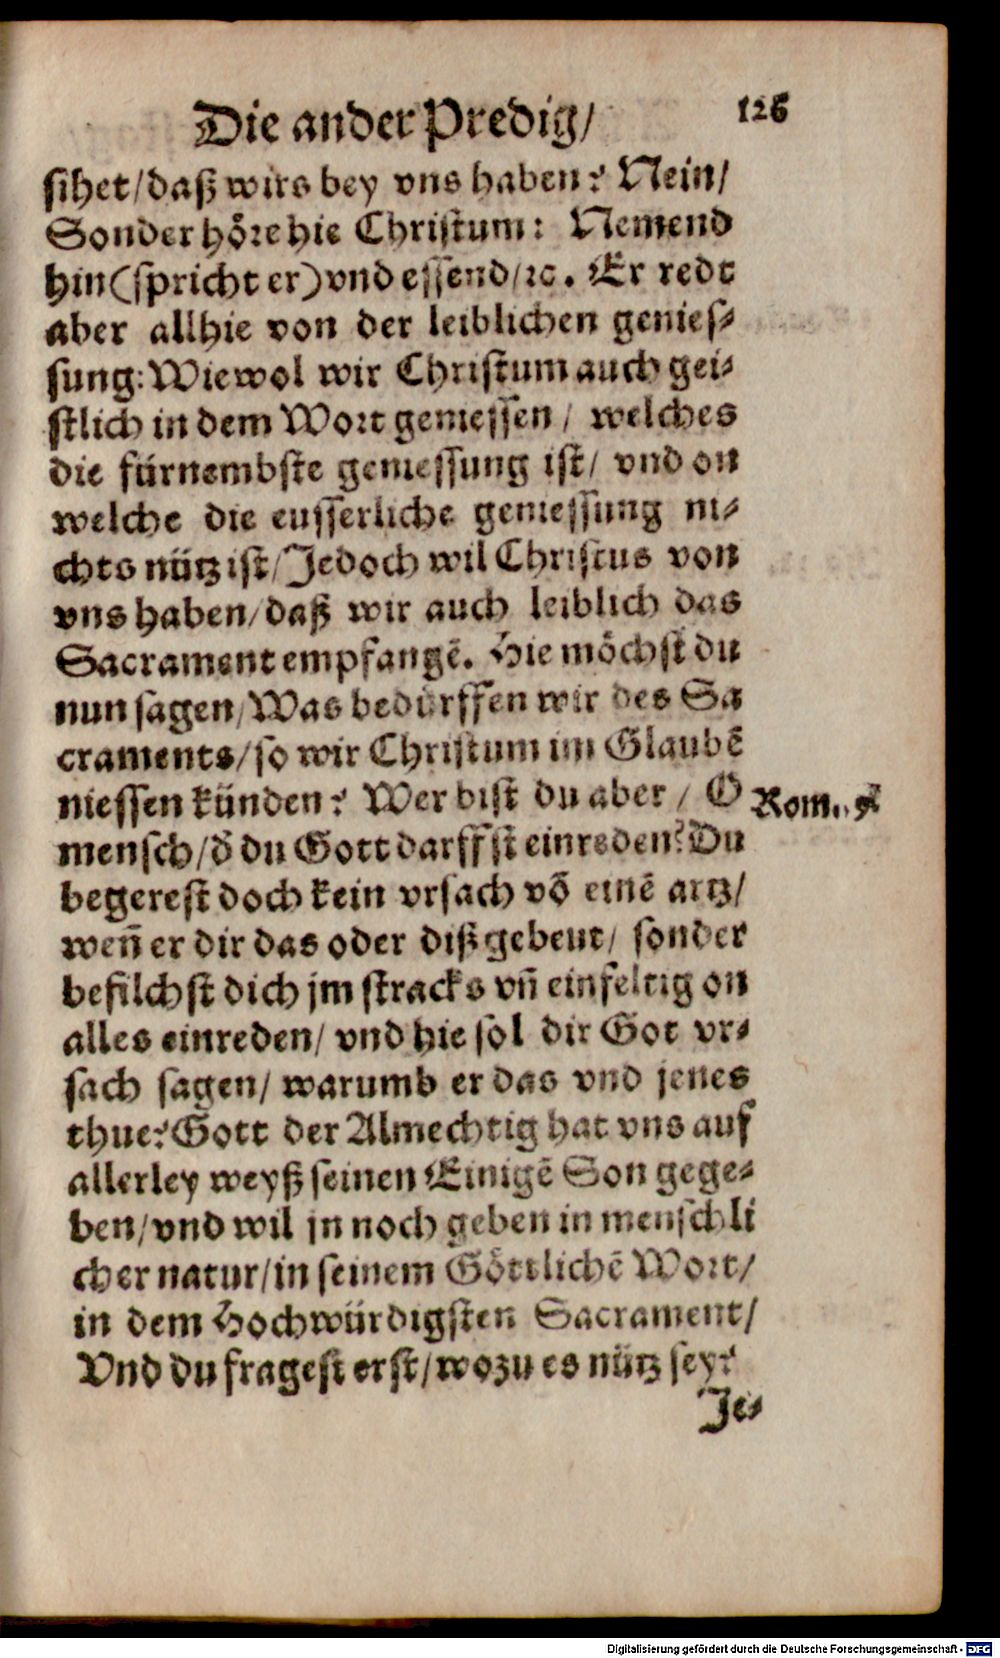 Die ander Predig/ 126
sihet/daß wirs bey vns haben? Nein/
Sonder höre hie Christum: Nemend
hin(spricht er)vnd essend/ꝛc. Er redt
aber allhie von der leiblichen genies⸗
sung: Wiewol wir Christum auch gei⸗
stlich in dem Wort geniessen / welches
die fürnembste geniessung ist/ vnd on
welche die eusserliche geniessung ni⸗
chts nütz ist/Jedoch wil Christus von
vns haben/daß wir auch leiblich das
Sacrament empfangē. Hie möchst du
nun sagen/Was bedürffen wir des Sa
craments/so wir Christum im Glaubē
niessen künden? Wer bist du aber / O
Rom. 9
mensch/d̄ du Gott darffst einreden? Du
begerest doch kein vrsach vō einē artz/
weñ er dir das oder diß gebeut/ sonder
befilchst dich jm stracks vñ einfeltig on
alles einreden/ vnd hie sol dir Got vr⸗
sach sagen/ warumb er das vnd jenes
thue? Gott der Almechtig hat vns auf
allerley weyß seinen Einigē Son gege⸗
ben/vnd wil jn noch geben in menschli
cher natur/in seinem Göttlichē Wort/
in dem Hochwürdigsten Sacrament/
Vnd du fragest erst/wozu es nütz sey?
Je⸗
Digitalisierung gefördert durch die Deutsche Forschungsgemeinschaft - DFG